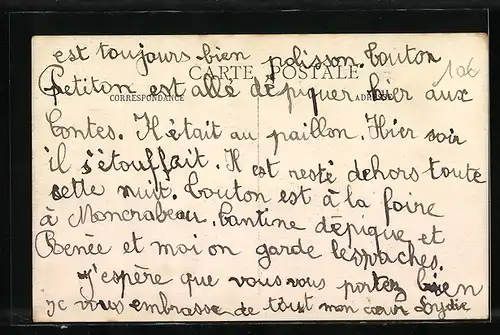 est toujours bien polisson. Touton
CARTE POSTALE
106
Petiton est allé dépiquer hier aux
CORRESPONDANCE
ADRESSE
Contes. Il était au paillon. Hier soir
il s'étouffait. Il est resté dehors toute
sette nuit. Touton est à la foire
à Moncrabeau. Cantine dépique et
Renée et moi on garde les vaches
j'espère que vous vous portez bien
je vous embrasse de tout mon cœur Lydie